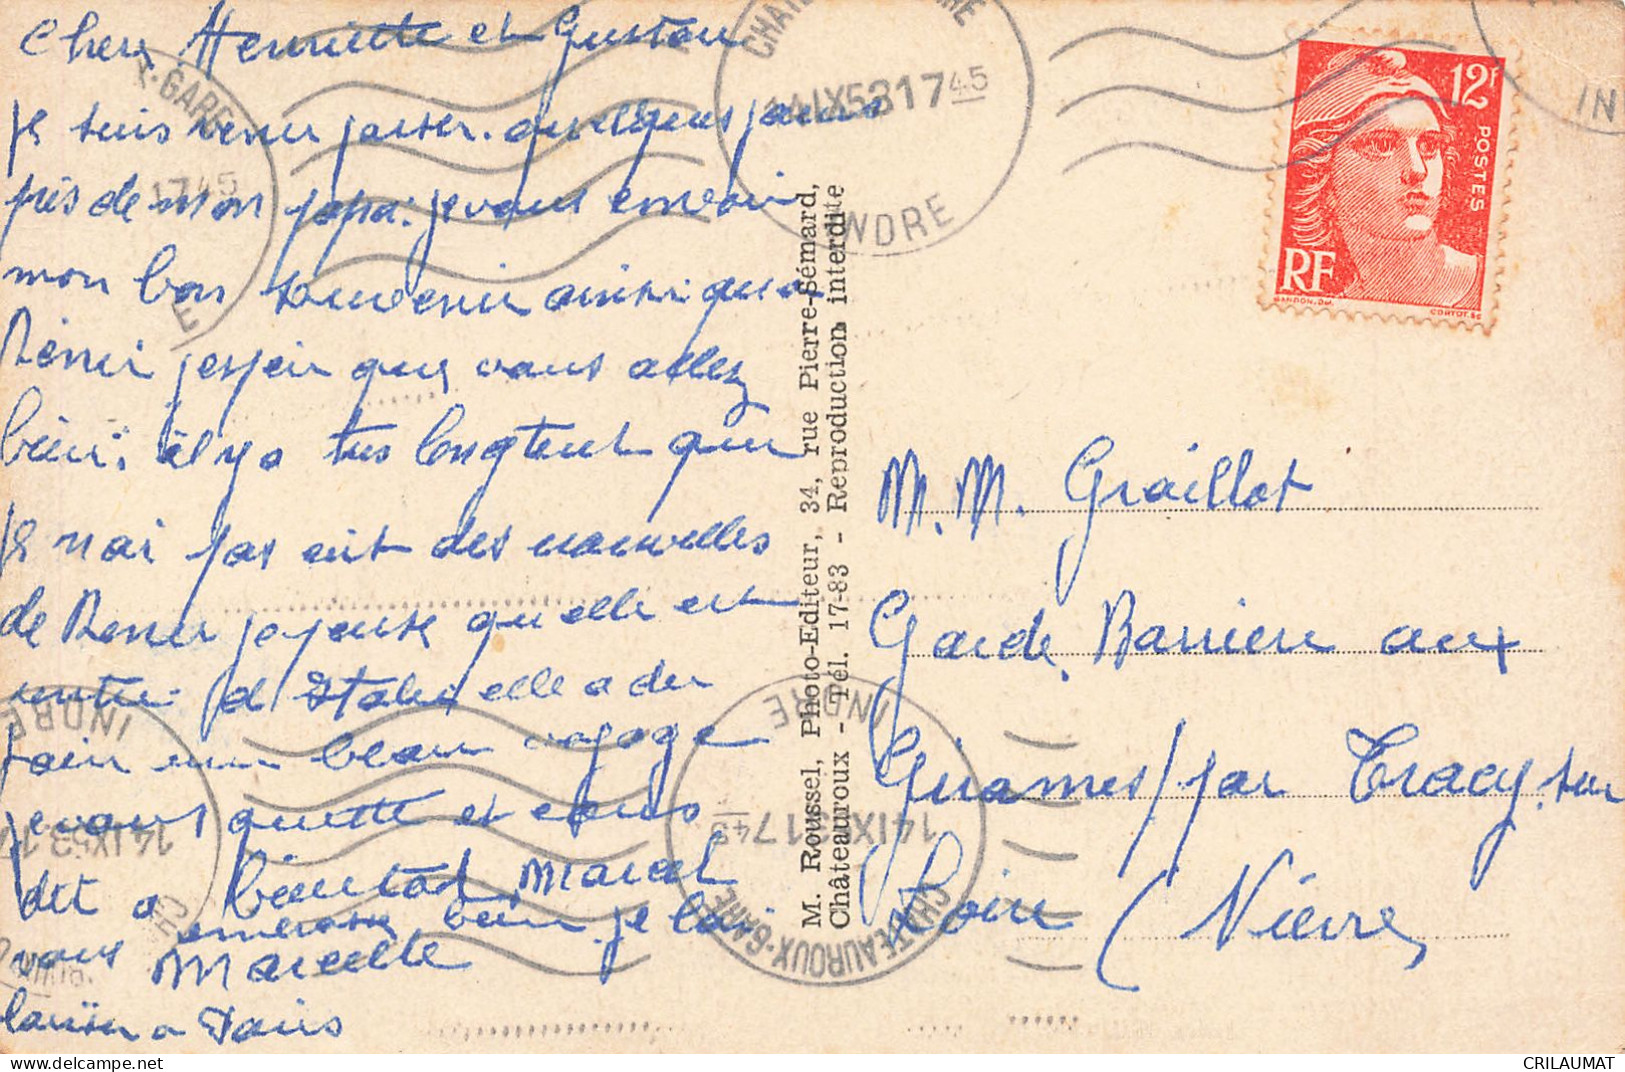 Chers Henriette et Gustave
je suis venu passer quelques jours
près de mon papa. je vous envoie
mon bon souvenir ainsi qu a
Renée j'espere que vous allez
bien. il y a tres longtent que
je n'ai pas eut des nouvelles
de Renée joyeuse qu elle est
rentre d Italie elle a du
faire un beau voyage
je vous quitte et vous
dit a bientot Marcel
vous embrasse bien je l'ai
Marcelle
laisser a Paris
M. Roussel, Photo-Editeur, 34, rue Pierre-Sémard,
Châteauroux - Tél. 17-83 - Reproduction interdite
INDRE
14 IX 53 17 45
CHATEAUROUX-GARE
12F
POSTES
RF
GANDON. DEL.
CORTOT. SC
M. M. Graillot
Garde Barriere aux
Girarmes / par Tracy sur
Loire (Nièvre)
CRILAUMAT